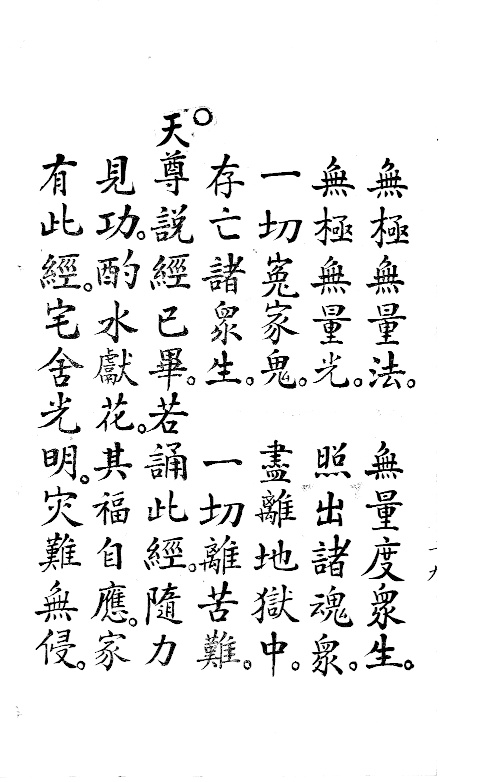 無極無量法。無量度衆生。
無極無量光。照出諸魂衆。
一切寃家鬼。盡離地獄中。
存亡諸衆生。一切離苦難。
○天尊説經已畢。若誦此經。隨力
見功。酌水獻花。其福自應。家
有此經。宅舍光明。灾難無侵。
十九